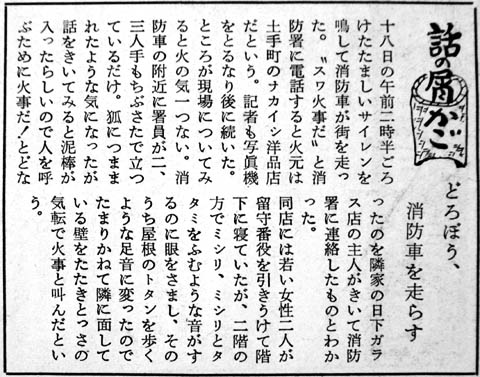 話の屑かご
どろぼう、
消防車を走らす
十八日の午前二時半ごろ
けたたましいサイレンを
鳴して消防車が街を走っ
た。〝スワ火事だ〟と消
防署に電話すると火元は
土手町のナカイシ洋品店
だという。記者も写眞機
をとるなり後に続いた。
ところが現場についてみ
ると火の気一つない。消
防車の附近に署員が二、
三人手もちぶさたで立つ
ているだけ。狐につままれ
たような気になったが
話をきいてみると泥棒が
入ったらしいので人を呼
ぶために火事だ!とどな
ったのを隣家の日下ガラ
ス店の主人がきいて消防
署に連絡したものとわか
った。
同店には若い女性二人が
留守番役を引きうけて階
下に寝ていたが、二階の
方でミシリ、ミシリとタ
タミをふむような音がす
るのに眼をさまし、その
うち屋根のトタンを歩く
ような足音に変ったので
たまりかねて隣に面して
いる壁をたたきとっさの
気転で火事と叫んだとい
う。